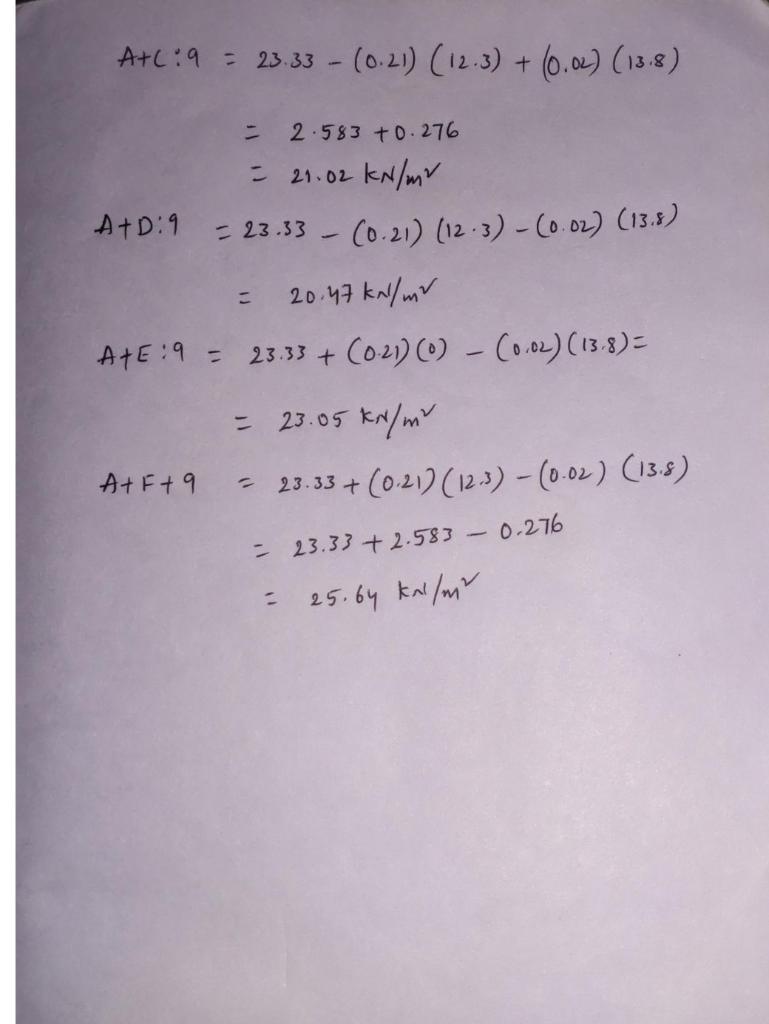 A+C:9 = 23.33 - (0.21) (12.3) + (0.02) (13.8)
= 2.583 +0.276
= 21.02 kN/m²
A+D:9 = 23.33 - (0.21) (12.3) - (0.02) (13.8)
= 20.47 kN/m²
A+E:9 = 23.33 + (0.21) (0) - (0.02) (13.8) =
= 23.05 kN/m²
A+F+9 = 23.33 + (0.21) (12.3) - (0.02) (13.8)
= 23.33 + 2.583 - 0.276
= 25.64 kN/m²